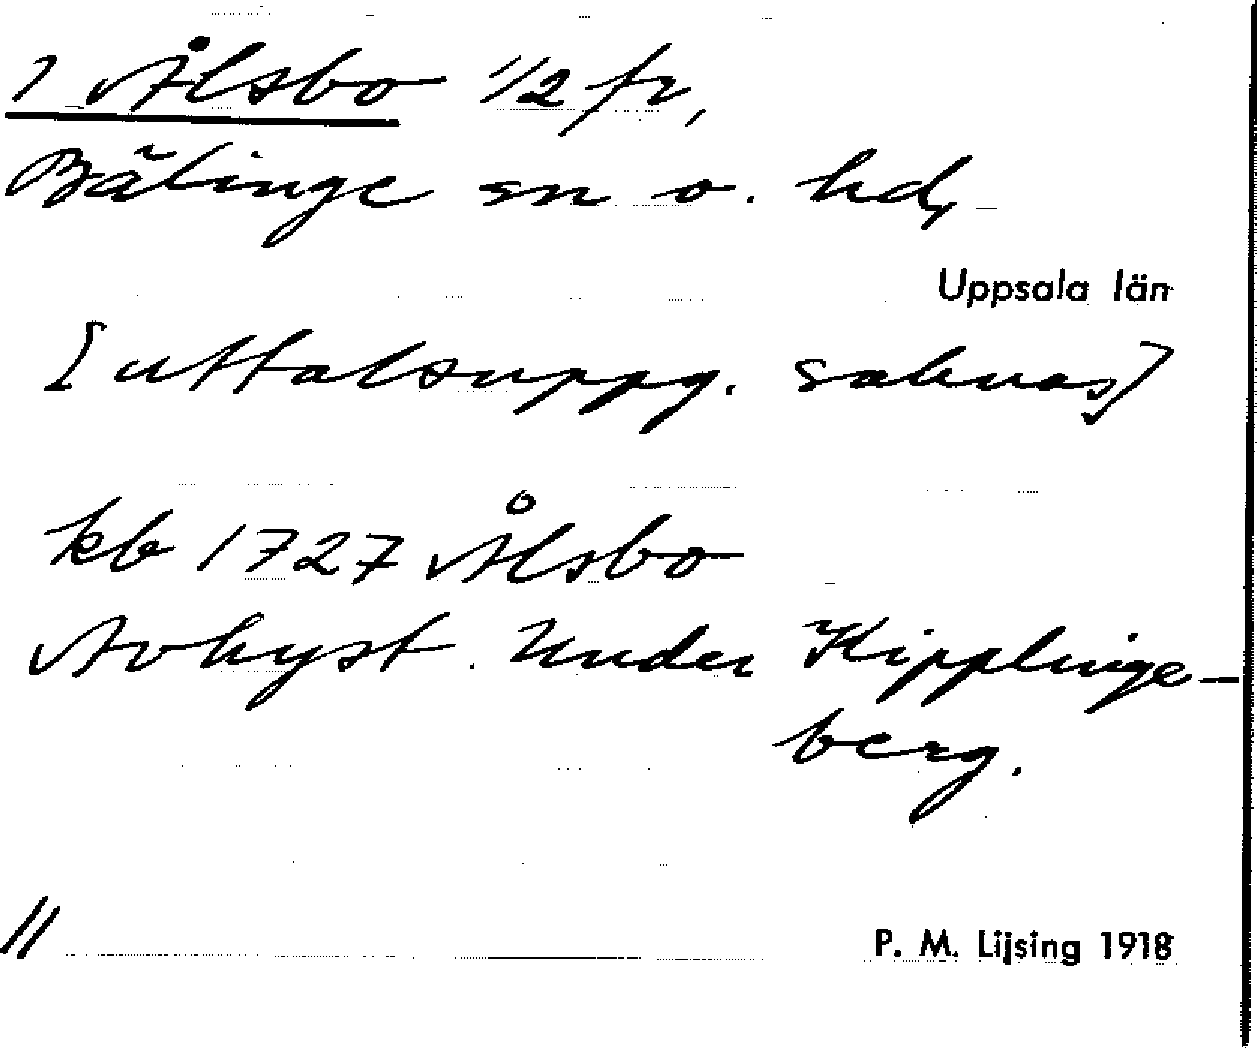 1 Ålsbo 1/2 fr,
Bälinge sn o. hd,
Uppsala län
[uttalsuppg. saknas]
kb 1727 Ålsbo
Avhyst. Under Kipplinge-
berg.
11
P. M. Lijsing 1918